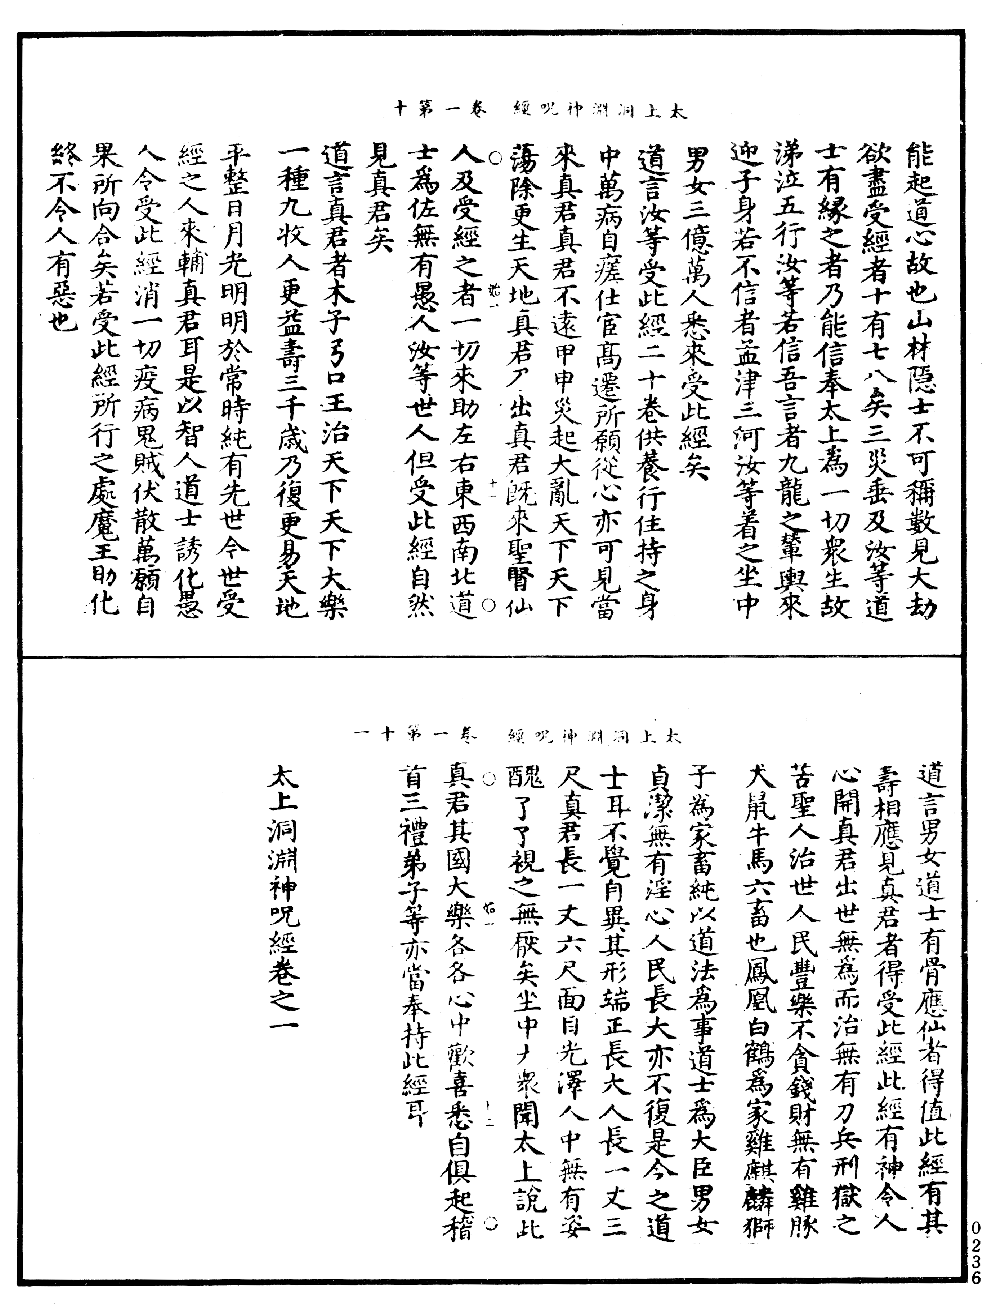 太上洞淵神呪經　卷一第十
能起道心故也山林隱士不可稱數見大劫
欲盡受經者十有七八矣三災垂及汝等道
士有緣之者乃能信奉太上為一切衆生故
涕泣五行汝等若信吾言者九龍之輦輿來
迎子身若不信者孟津三河汝等着之坐中
男女三億萬人悉來受此經矣
道言汝等受此經二十卷供養行住持之身
中萬病自瘥仕宦高遷所願從心亦可見當
來真君真不遠甲申災起大亂天下天下
蕩除更生天地真君乃出真君既來聖賢仙
人及受經之者一切來助左右東西南北道
士為佐無有愚人汝等世人但受此經自然
見真君矣
道言真君者木子弓口王治天下天下大樂
一種九收人更益壽三千歲乃復更易天地
平整日月光明明於常時純有先世今世受
經之人來輔真君耳是以智人道士誘化愚
人令受此經消一切疫病鬼賊伏散萬願自
果所向合矣若受此經所行之處魔王助化
終不令人有惡也
太上洞淵神呪經　卷一第十一
道言男女道士有骨應仙者得值此經有其
壽相應見真君者得受此經此經有神令人
心開真君出世無為而治無有刀兵刑獄之
苦聖人治世人民豐樂不貪錢財無有雞豚
犬鼠牛馬六畜也鳳凰白鶴為家雞麒麟獅
子為家畜純以道法為事道士為大臣男女
貞潔無有淫心人民長大亦不復是今之道
士耳不覺自異其形端正長大人長一丈三
尺真君長一丈六尺面目光澤人中無有姿
醜了了視之無厭矣坐中大衆聞太上說此
真君其國大樂各各心中歡喜悉自俱起稽
首三禮弟子等亦當奉持此經耳
太上洞淵神呪經卷之一
0236